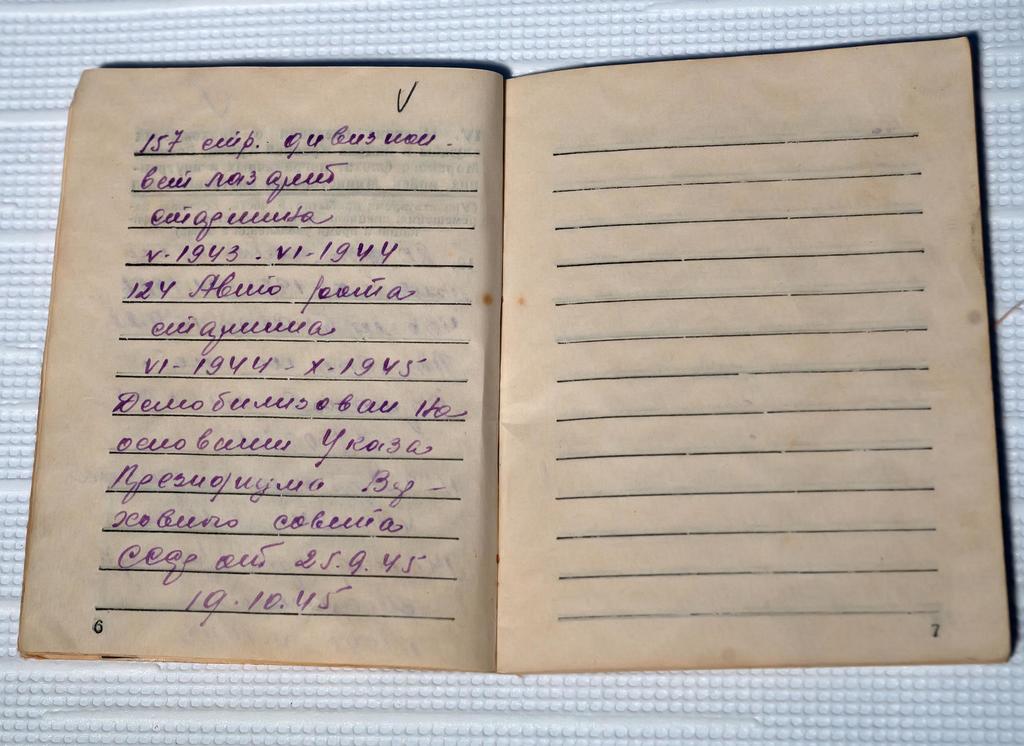 157 стр. дивизион.
вет лазарет
старшина
V-1943 - VI-1944
124 Авто рота
старшина
VI-1944 - X-1945
Демобилизован на
основании Указа
Президиума Вер-
ховного совета
СССР от 25.9.45
19.10.45
6
7